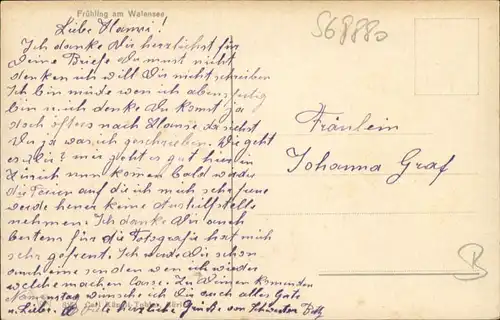 Frühling am Walensee
568880
Liebe Hanni!
Ich danke Dir herzlichst für
Deine Briefe du must nicht
denken ich will Dir nicht schreiben
Ich bin müde wen ich abens fertig
bin u. ich denke Du komst ja
doch öfters nach Hause da siehst
Du ja was ich geschrieben. Wie geht
es Dir? mir geht es gut hier in
Zürich nun komen bald wieder
die Ferien auf die ich mich sehr freue
werde heuer keine Aushilfstelle
nehmen. Ich danke Dir auch
bestens für die Fotografie hat mich
sehr gefreut. Ich werde Dir schon
auch eine senden wen ich wieder
welche machen lasse. Zu Deinem komenden
Namenstag wünsche ich Dir auch alles Gute
u. Liebe. herzliche Grüße von Schwester
Fräulein
Johanna Graf